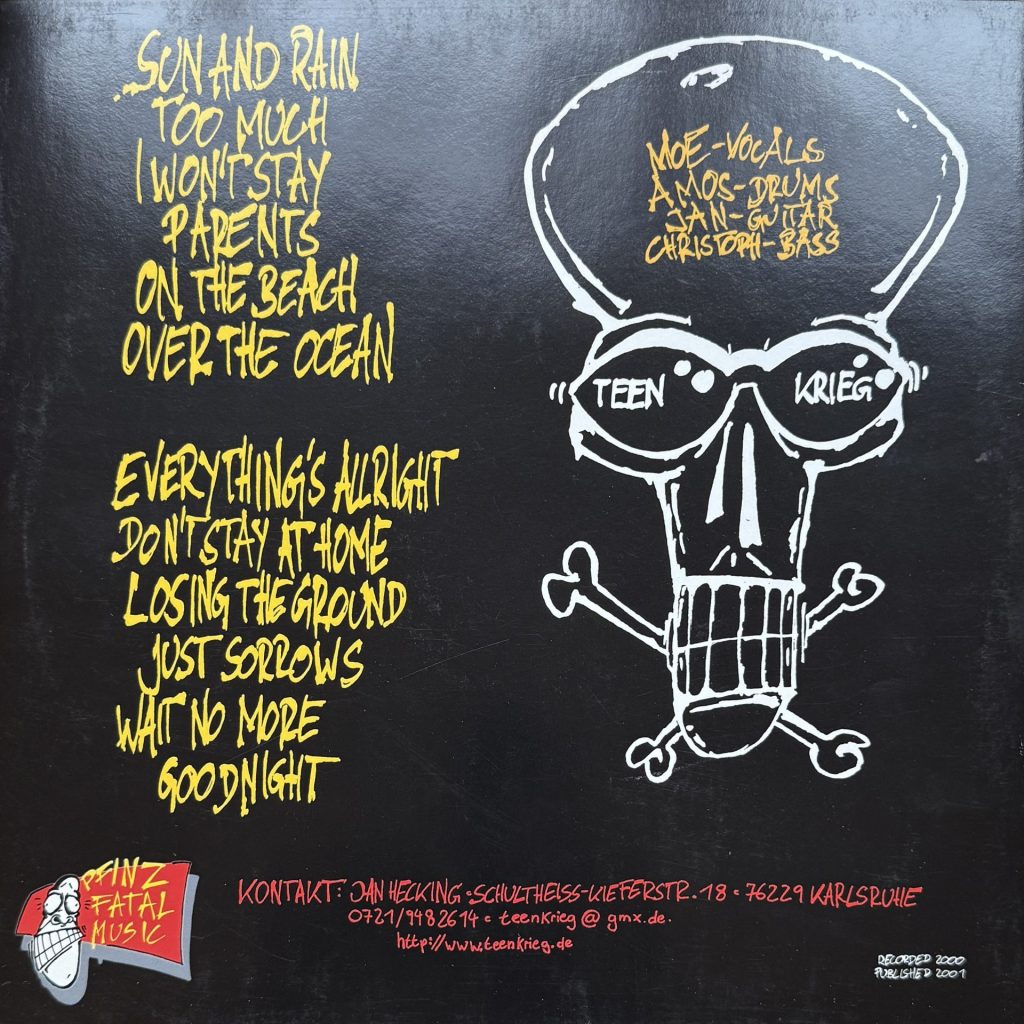 ...SUN AND RAIN
TOO MUCH
I WON'T STAY
PARENTS
ON THE BEACH
OVER THE OCEAN
EVERYTHING'S ALLRIGHT
DON'T STAY AT HOME
LOSING THE GROUND
JUST SORROWS
WAIT NO MORE
GOODNIGHT
MOE-VOCALS
A.MOS-DRUMS
JAN-GUITAR
CHRISTOPH-BASS
TEEN KRIEG
PFINZ
FATAL
MUSIC
KONTAKT: JAN HECKING · SCHULTHEISS-KIEFERSTR. 18 · 76229 KARLSRUHE
0721/9482614 · teenkrieg @ gmx.de.
http://www.teenkrieg.de
RECORDED 2000
PUBLISHED 2001